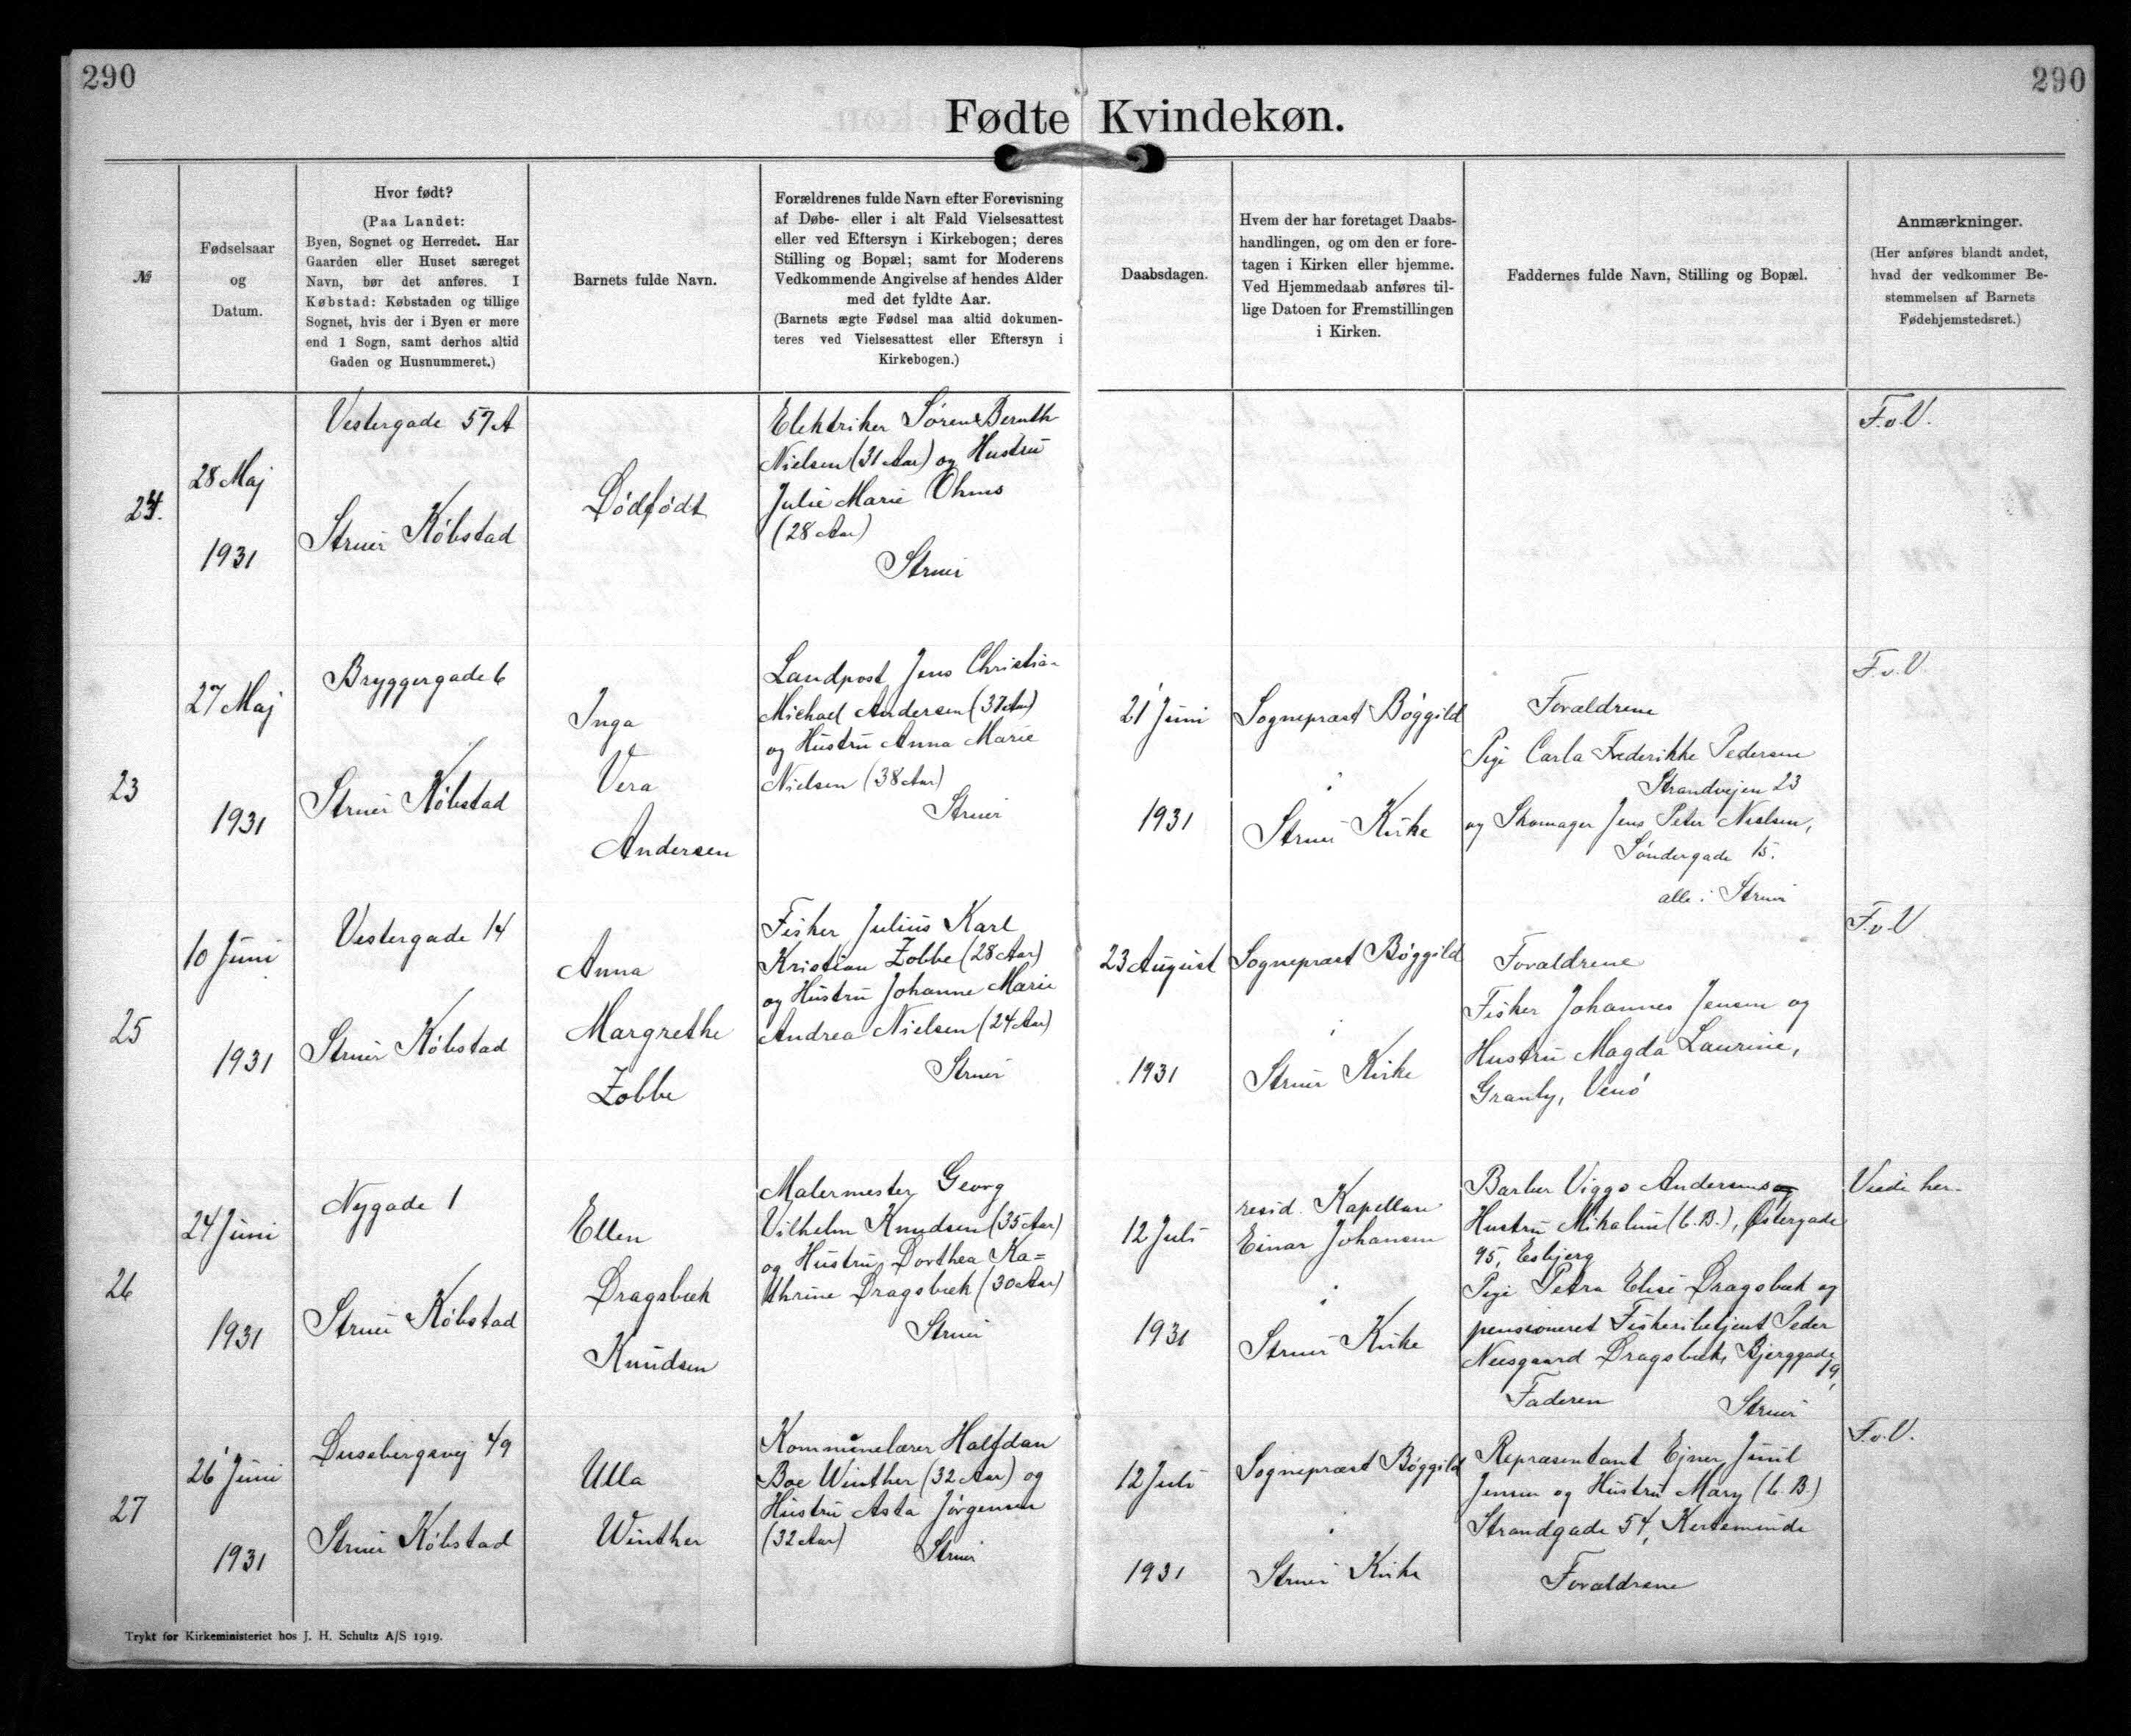 290
290
Fødte Kvindekøn.
№
Fødselsaar
og
Datum.
Hvor født?
(Paa Landet:
Byen, Sognet og Herredet. Har
Gaarden eller Huset særeget
Navn, bør det anføres. I
Købstad: Købstaden og tillige
Sognet, hvis der i Byen er mere
end 1 Sogn, samt derhos altid
Gaden og Husnummeret.)
Barnets fulde Navn.
Forældrenes fulde Navn efter Forevisning
af Døbe- eller i alt Fald Vielsesattest
eller ved Eftersyn i Kirkebogen; deres
Stilling og Bopæl; samt for Moderens
Vedkommende Angivelse af hendes Alder
med det fyldte Aar.
(Barnets ægte Fødsel maa altid dokumen-
teres ved Vielsesattest eller Eftersyn i
Kirkebogen.)
Daabsdagen.
Hvem der har foretaget Daabs-
handlingen, og om den er fore-
tagen i Kirken eller hjemme.
Ved Hjemmedaab anføres til-
lige Datoen for Fremstillingen
i Kirken.
Faddernes fulde Navn, Stilling og Bopæl.
Anmærkninger.
(Her anføres blandt andet,
hvad der vedkommer Be-
stemmelsen af Barnets
Fødehjemstedsret.)
24.
28 Maj
1931
Vestergade 57A
Struer Købstad
Dødfødt
Elektriker Søren Bernth
Nielsen (31 Aar) og Hustru
Julie Marie Ohms
(28 Aar)
Struer
F.o.V.
23
27 Maj
1931
Bryggergade 6
Struer Købstad
Inga
Vera
Andersen
Landpost Jens Christian
Michael Andersen (37 Aar)
og Hustru Anna Marie
Nielsen (38 Aar)
Struer
21 Juni
1931
Sognepræst Bøggild
i
Struer Kirke
Forældrene
Pige Carla Frederikke Pedersen
Strandvejen 23
og Skomager Jens Peter Nielsen,
Søndergade 15.
alle i Struer
F.v.V.
25
10 Juni
1931
Vestergade 14
Struer Købstad
Anna
Margrethe
Zobbe
Fisker Julius Karl
Kristian Zobbe (28 Aar)
og Hustru Johanne Marie
Andrea Nielsen (24 Aar)
Struer
23 August
1931
Sognepræst Bøggild
i
Struer Kirke
Forældrene
Fisker Johannes Jensen og
Hustru Magda Laurine,
Granly, Venø
F.v.V
26
24 Juni
1931
Nygade 1
Struer Købstad
Ellen
Dragsbæk
Knudsen
Malermester Georg
Vilhelm Knudsen (35 Aar)
og Hustru Dorthea Ka=
thrine Dragsbæk (30 Aar)
Struer
12 Juli
1931
resid. Kapellan
Einar Johansen
i
Struer Kirke
Barber Viggo Andersens og
Hustru Mikaline (t.B.), Østergade
95, Esbjerg
Pige Petra Elise Dragsbæk og
pensioneret Fiskeribetjent Peder
Neesgaard Dragsbæk, Bjerggade 19,
Faderen Struer
Viede her.
27
26 Juni
1931
49
Struer Købstad
Ulla
Winther
Kommunelærer Halfdan
Boe Winther (32 Aar) og
Hustru Asta Jørgensen
(32 Aar)
Struer
12 Juli
1931
Sognepræst Bøggild
i
Struer Kirke
Repræsentant Ejner Juul
Jensen og Hustru Mary (t.B.)
Strandgade 54, Kerteminde
Forældrene
F.v.V.
Trykt for Kirkeministeriet hos J. H. Schultz A/S 1919.